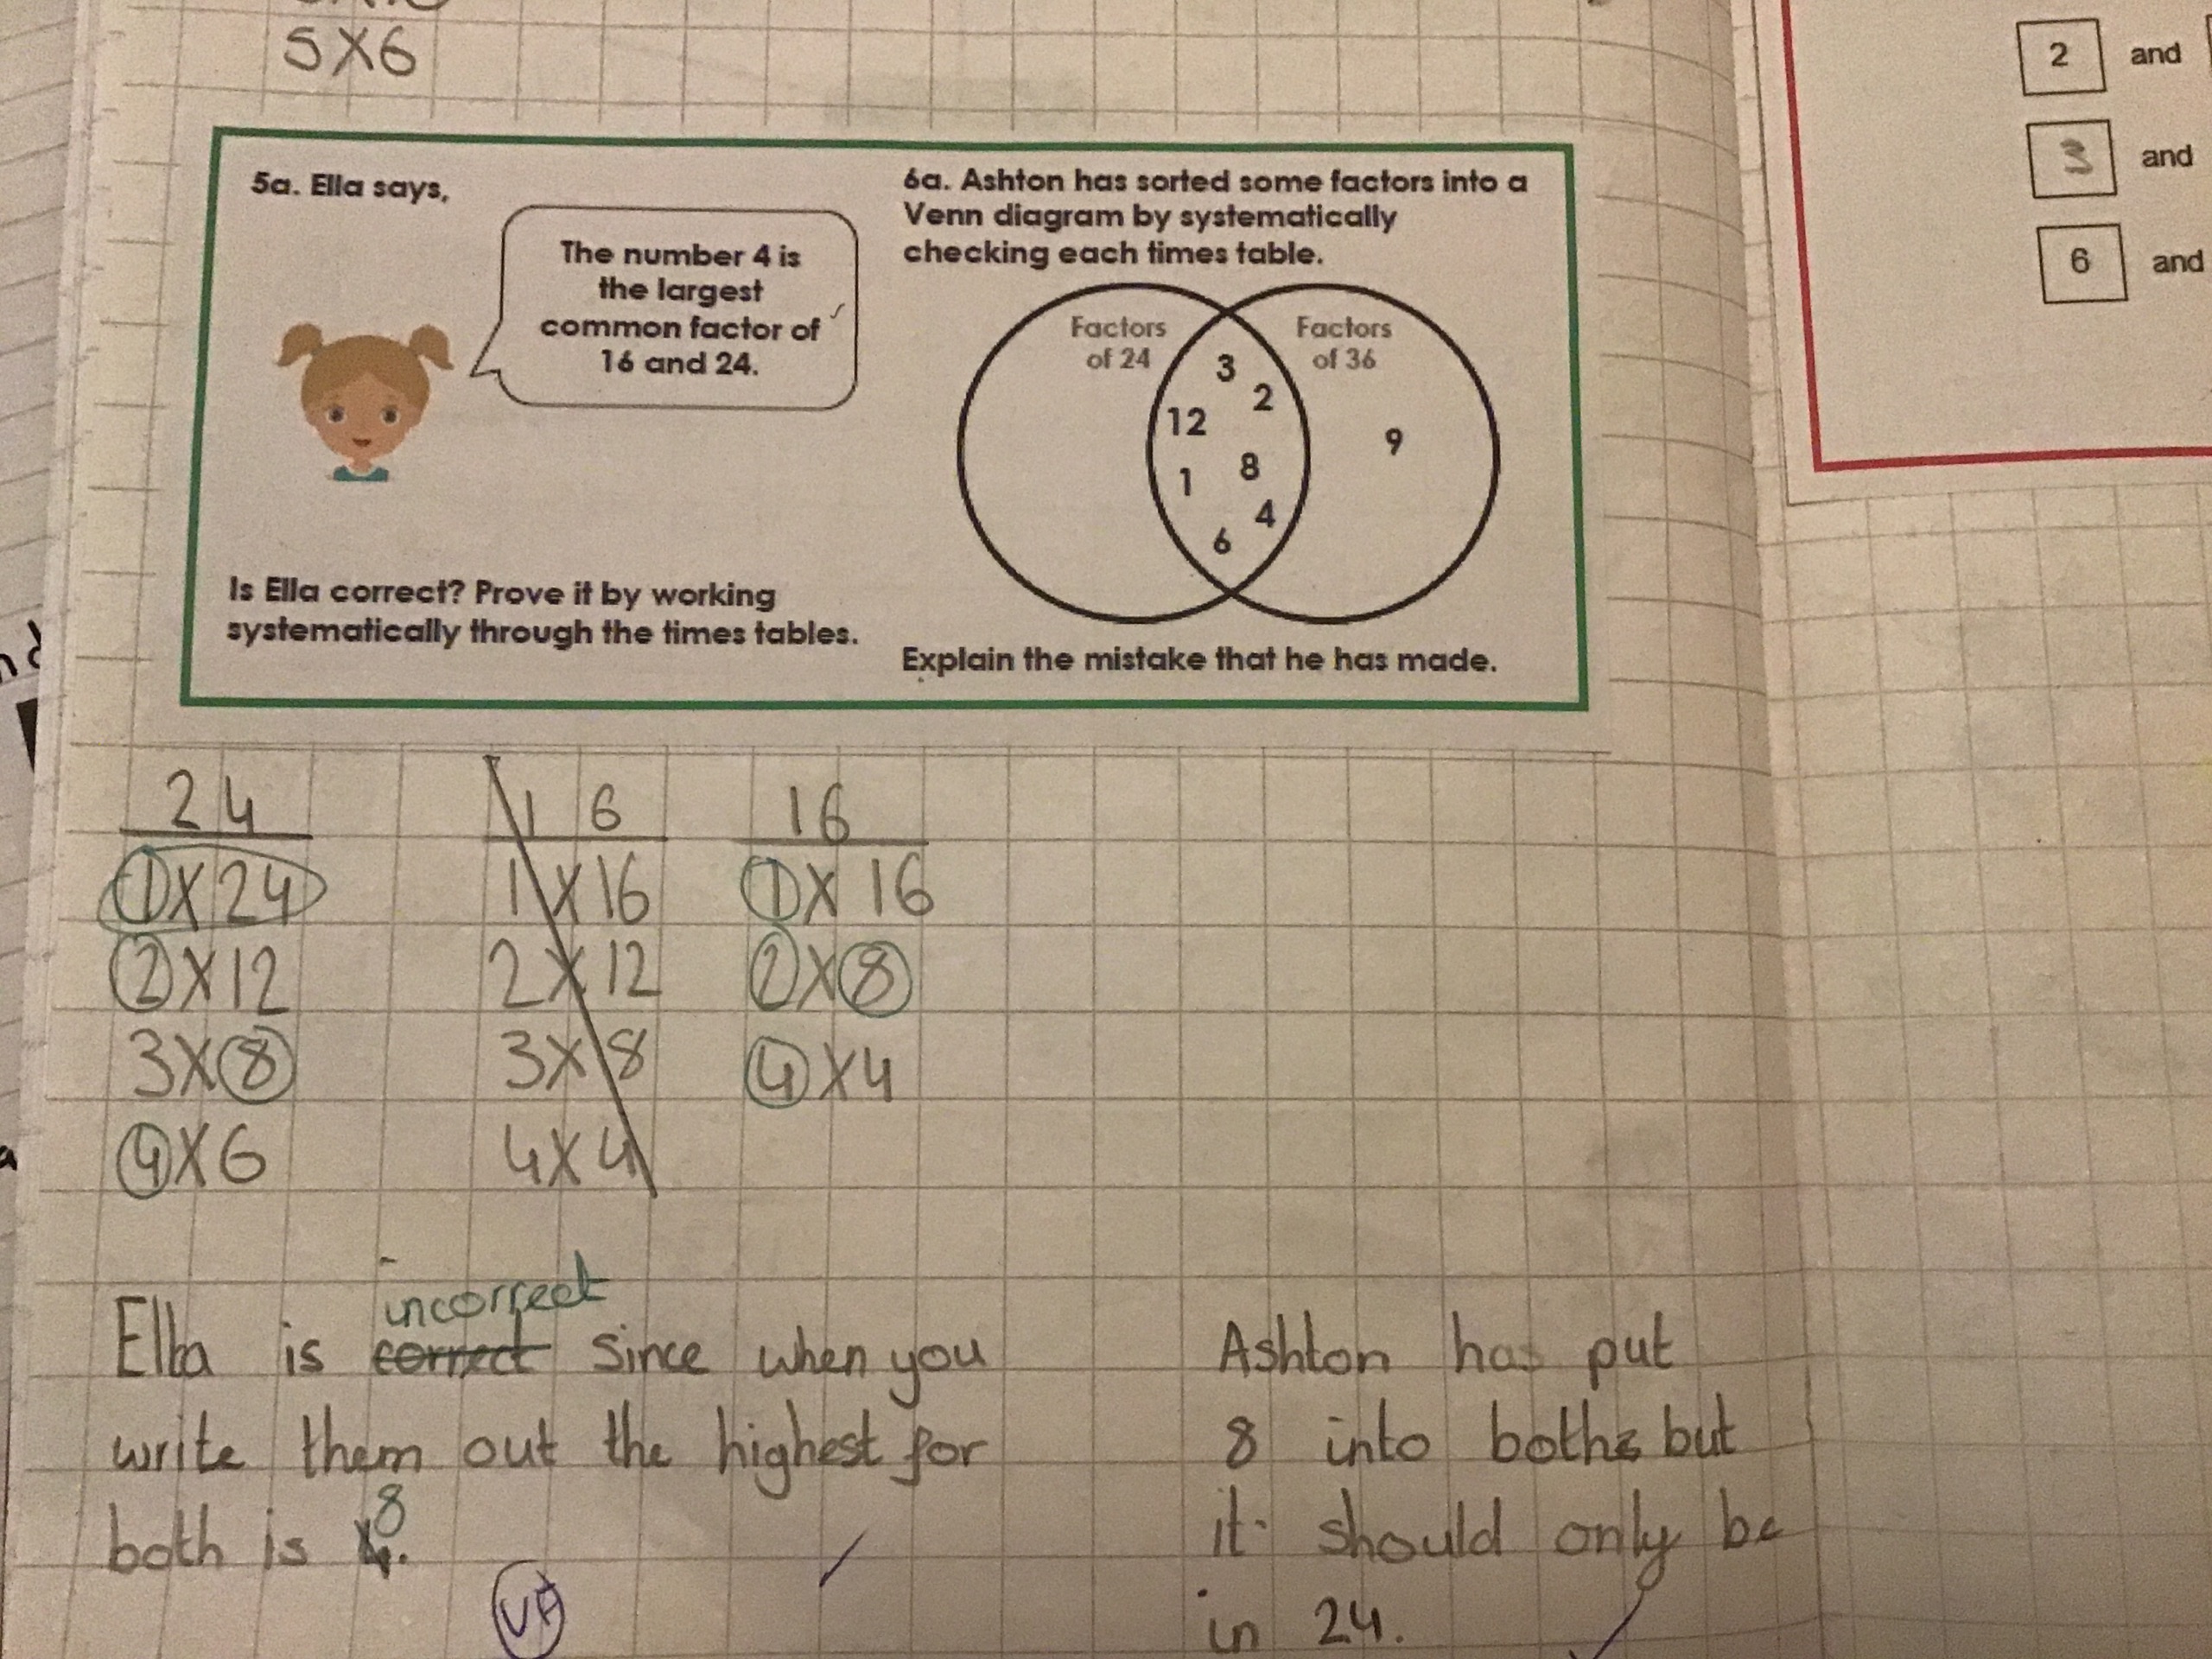 5X6
2 and
3 and
6 and
5a. Ella says,
The number 4 is
the largest
common factor of
16 and 24.
Is Ella correct? Prove it by working
systematically through the times tables.
6a. Ashton has sorted some factors into a
Venn diagram by systematically
checking each times table.
Factors
of 24
Factors
of 36
3
2
12
9
8
1
4
6
Explain the mistake that he has made.
24
1X24
2X12
3X8
4X6
1 6
1X16
2X12
3X8
4X4
16
1X 16
2X8
4X4
Ella is correct incorrect since when you
write them out the highest for
both is 4. 8
VF
Ashton has put
8 into boths but
it should only be
in 24.